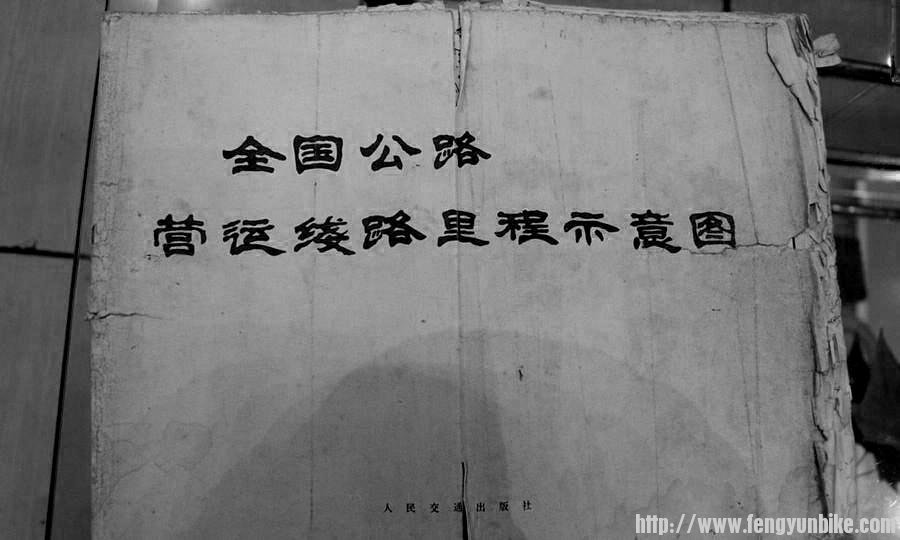 全国公路
营运线路里程示意图
人民交通出版社
http://www.fengyunbike.com